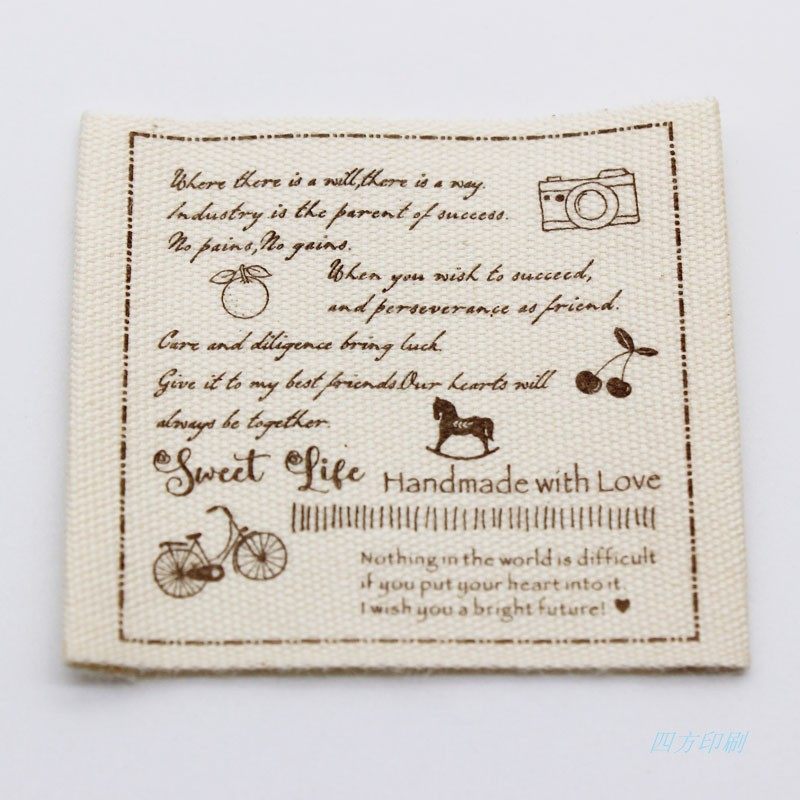 Where there is a will,there is a way.
Industry is the parent of success.
No pains,No gains.
When you wish to succeed,
and perseverance as friend.
Care and diligence bring luck.
Give it to my best friends.Our hearts will
always be together.
Sweet Life
Handmade with Love
Nothing in the world is difficult
if you put your heart into it.
I wish you a bright future!
四方印刷